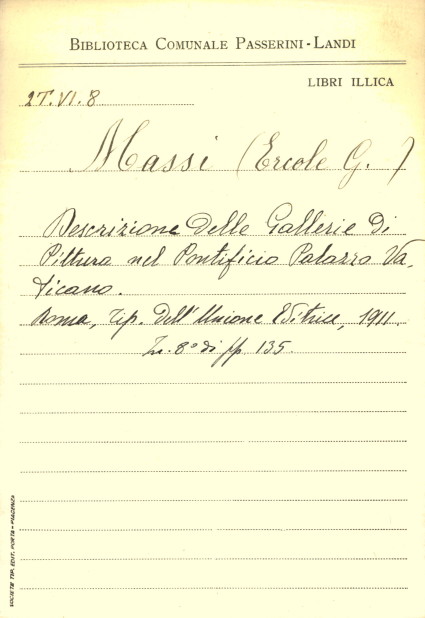 BIBLIOTECA COMUNALE PASSERINI-LANDI
LIBRI ILLICA
2T.VI.8
Massi (Ercole G.)
Descrizione delle Gallerie di
Pittura nel Pontificio Palazzo Va-
ticano.
Roma, Tip. dell'Unione Editrice, 1911.
In 8° di pp 135.
SOCIETÀ TIP. EDIT. PORTA - PIACENZA